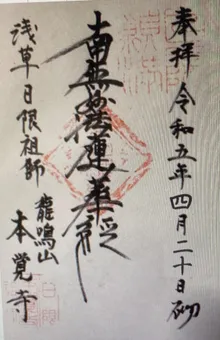 奉拝 令和五年四月二十日 砌
南無妙法蓮華経
浅草日限祖師
龍鳴山
本覚寺